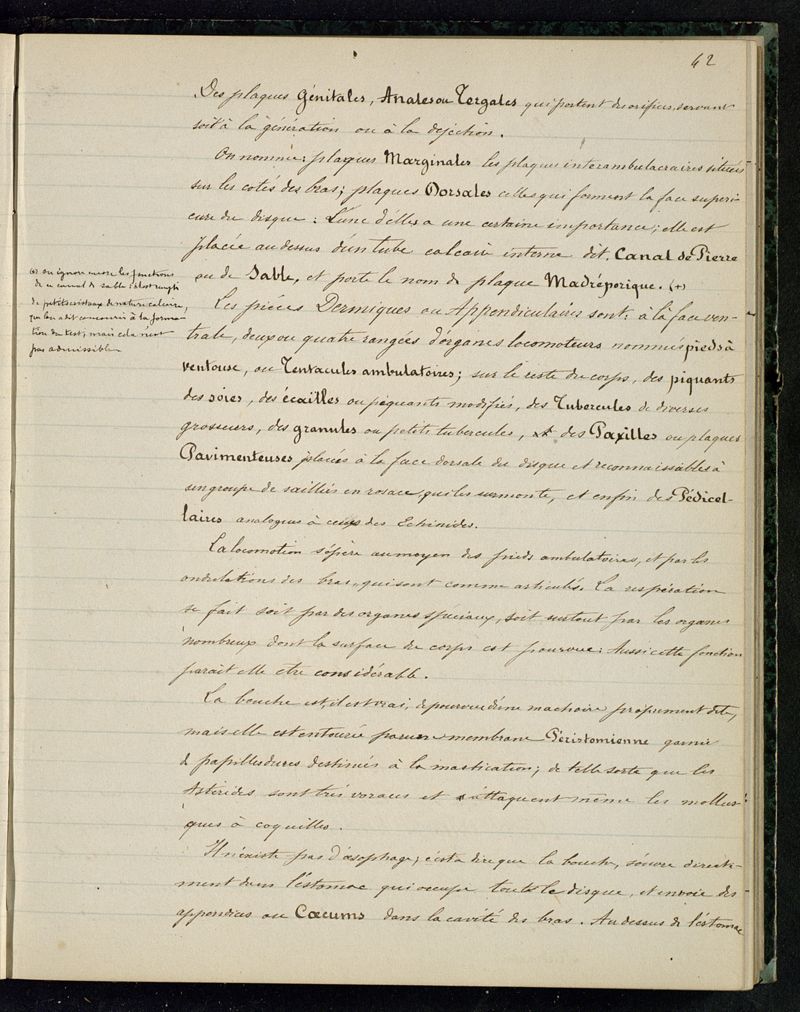 42
Des plaques Génitales, Anales ou Tergales qui portent des orifices, servant
soit à la génération ou à la dejection.
On nomme: plaques Marginales les plaques interambulacraires situées
sur les cotés des bras; plaques Dorsales celles qui forment la face supéri-
eure du disque: L'une d'elles a une certaine importance; elle est
placée au dessus d'un tube calcaire interne dit. Canal de Pierre
ou de Sable, et porte le nom de plaque Madréporique. (+)
(+) on ignore encore les fonctions
de ce canal de sable: il est rempli
de petits cristaux de nature calcaire,
que l'on a dit concourir à la forma-
tion du test; mais cela n'est
pas admissible
Les pièces Dermiques ou Appendiculaires sont: à la face ven-
trale, deux ou quatre rangées d'organes locomoteurs nommés pieds à
ventouse, ou Tentacules ambulatoires; sur le reste du corps, des piquants
des soies, des écailles ou piquants modifiés, des Tubercules de diverses
grosseurs, des granules ou petits tubercules, des Paxilles ou plaques
Pavimenteuses placées à la face dorsale du disque et reconnaissables à
un groupe de saillies en rosace, qui les surmonte, et enfin des Pédicel-
laires analogues à ceux des Echinides.
La locomotion s'opère au moyen des pieds ambulatoires, et par les
ondulations des bras, qui sont comme articulés. La respiration
se fait soit par des organes spéciaux, soit surtout par les organes
nombreux dont la surface du corps est pourvue: Aussi cette fonction
parait elle etre considérable.
La bouche est, il est vrai, dépourvue d'une machoire proprement dite,
mais elle est entourée par une membrane Péristomienne garnie
de papilles dures destinées à la mastication; de telle sorte que les
Astérides sont très voraces et s'attaquent même les mollus-
ques à coquilles.
Il n'existe pas d'œsophage; c'est à dire que la bouche, s'ouvre directe-
ment dans l'estomac qui occupe tout le disque, et envoie des
appendices ou Cœcums dans la cavité des bras. Au dessus de l'estomac